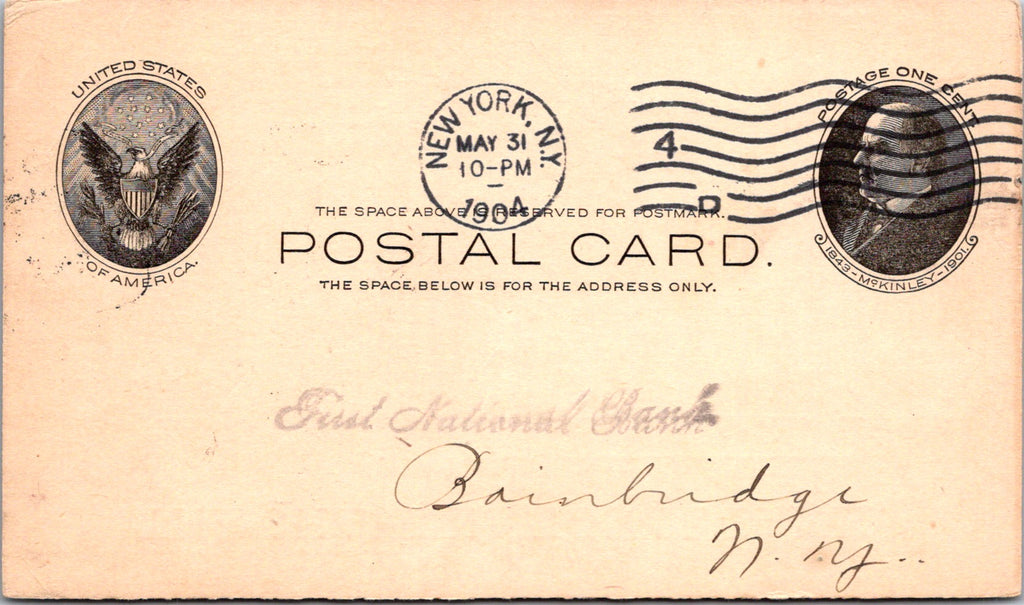 UNITED STATES
OF AMERICA.
NEW YORK, N.Y.
MAY 31
10-PM
1904
4
D
POSTAGE ONE CENT
1843-McKINLEY-1901.
THE SPACE ABOVE IS RESERVED FOR POSTMARK.
POSTAL CARD.
THE SPACE BELOW IS FOR THE ADDRESS ONLY.
First National Bank
Bainbridge
N. Y..